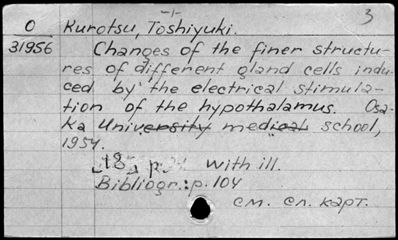 -1-
3
O Kurotsu, Toshiyuki.
31956 Changes of the finer structu-
res of different gland cells indu-
ced by the electrical stimula-
tion of the hypothalamus. Osa-
ka University medical school,
1954.
with ill.
Bibliogr.: p. 104
см. сл. карт.